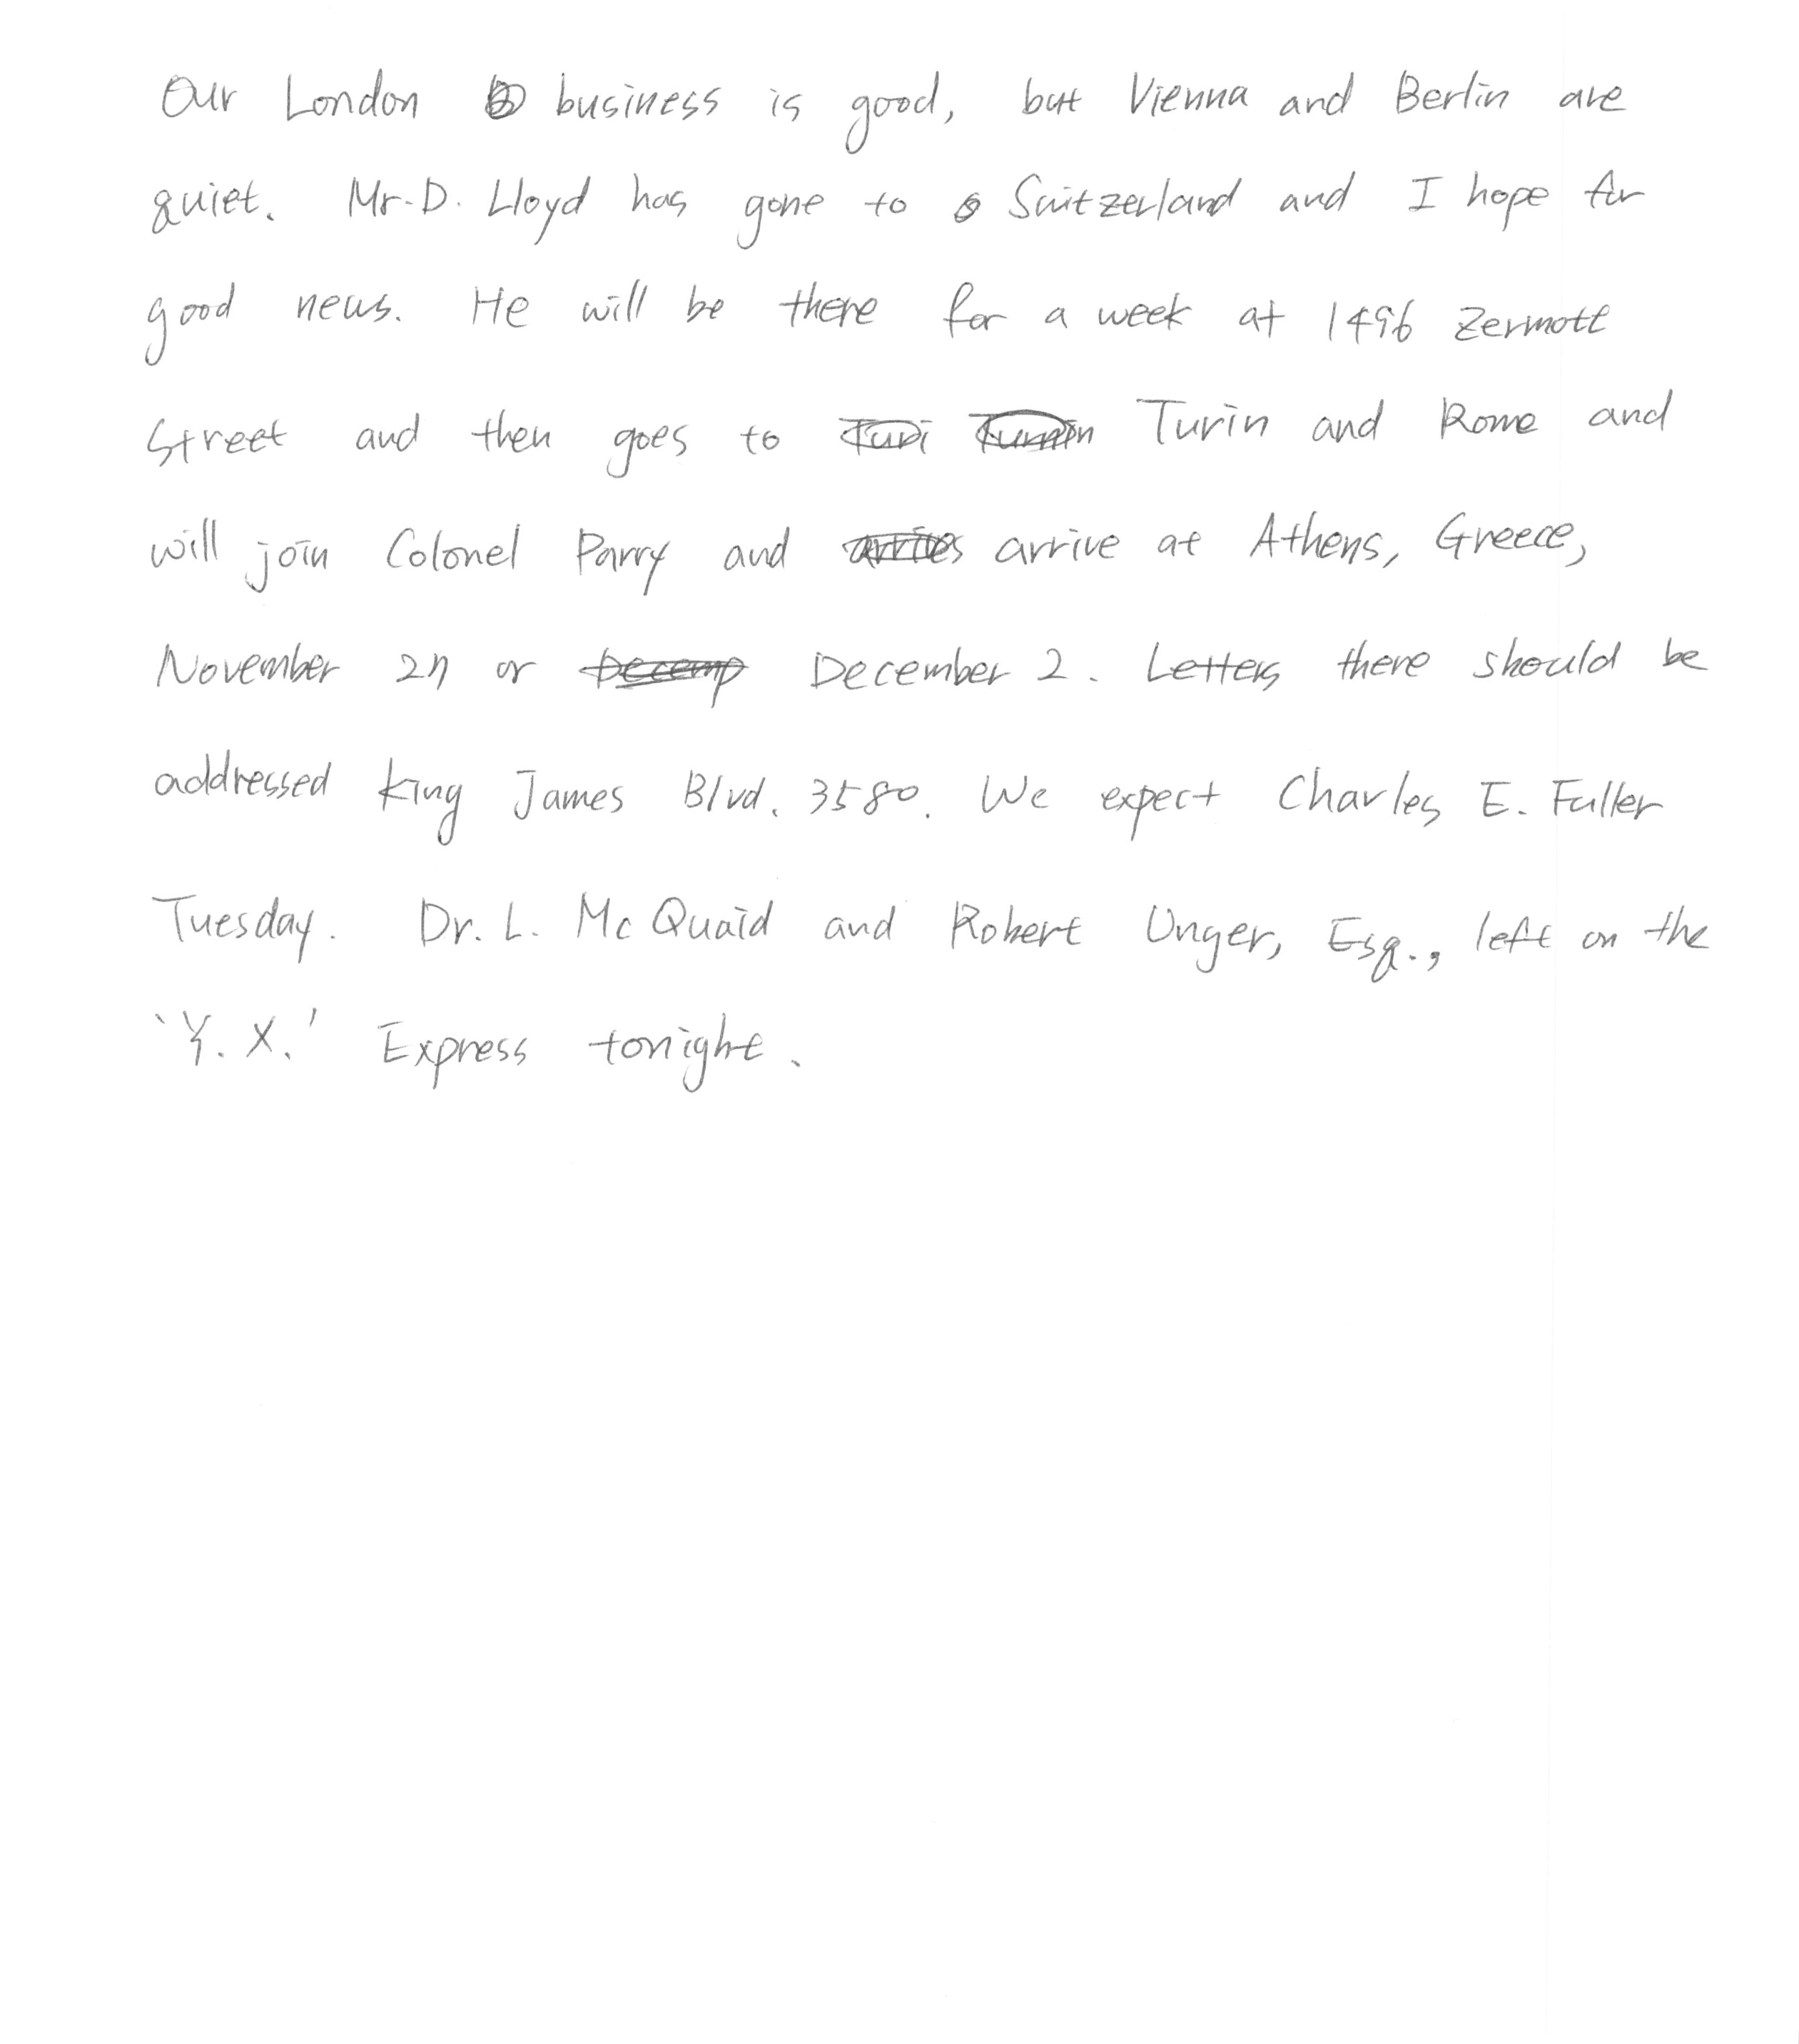 Our London business is good, but Vienna and Berlin are
quiet. Mr. D. Lloyd has gone to Switzerland and I hope for
good news. He will be there for a week at 1496 Zermott
Street and then goes to Turin and Rome and
will join Colonel Parry and arrive at Athens, Greece,
November 27 or December 2. Letters there should be
addressed King James Blvd. 3580. We expect Charles E. Fuller
Tuesday. Dr. L. McQuaid and Robert Unger, Esq., left on the
'Y.X.' Express tonight.